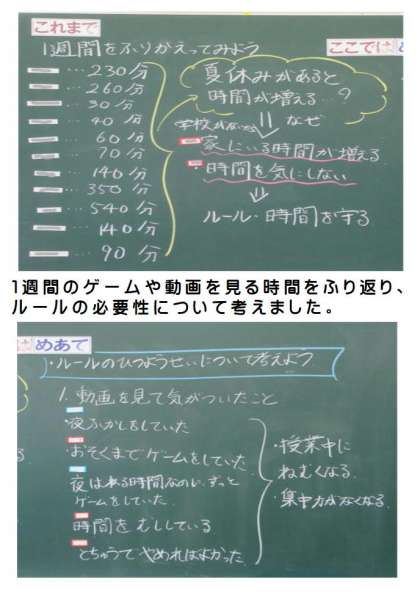 これまで
1週間をふりかえってみよう
ここでは
…230分
…260分
…30分
…40分
…60分
…70分
…140分
…350分
…540分
…140分
…90分
夏休みがあると
時間が増える…?
なぜ
学校がないから
家にいる時間が増える
・時間を気にしない
ルール・時間を守る
1週間のゲームや動画を見る時間をふり返り、
ルールの必要性について考えました。
は めあて
・ルールのひつようせいについて考えよう
1. 動画を見て気がついたこと
・夜ふかしをしていた
・おそくまでゲームをしていた
・夜はねる時間なのに、ずっと
ゲームをしていた
・時間をむししている
・とちゅうでやめればよかった
・授業中に
ねむくなる
・集中力がなくなる